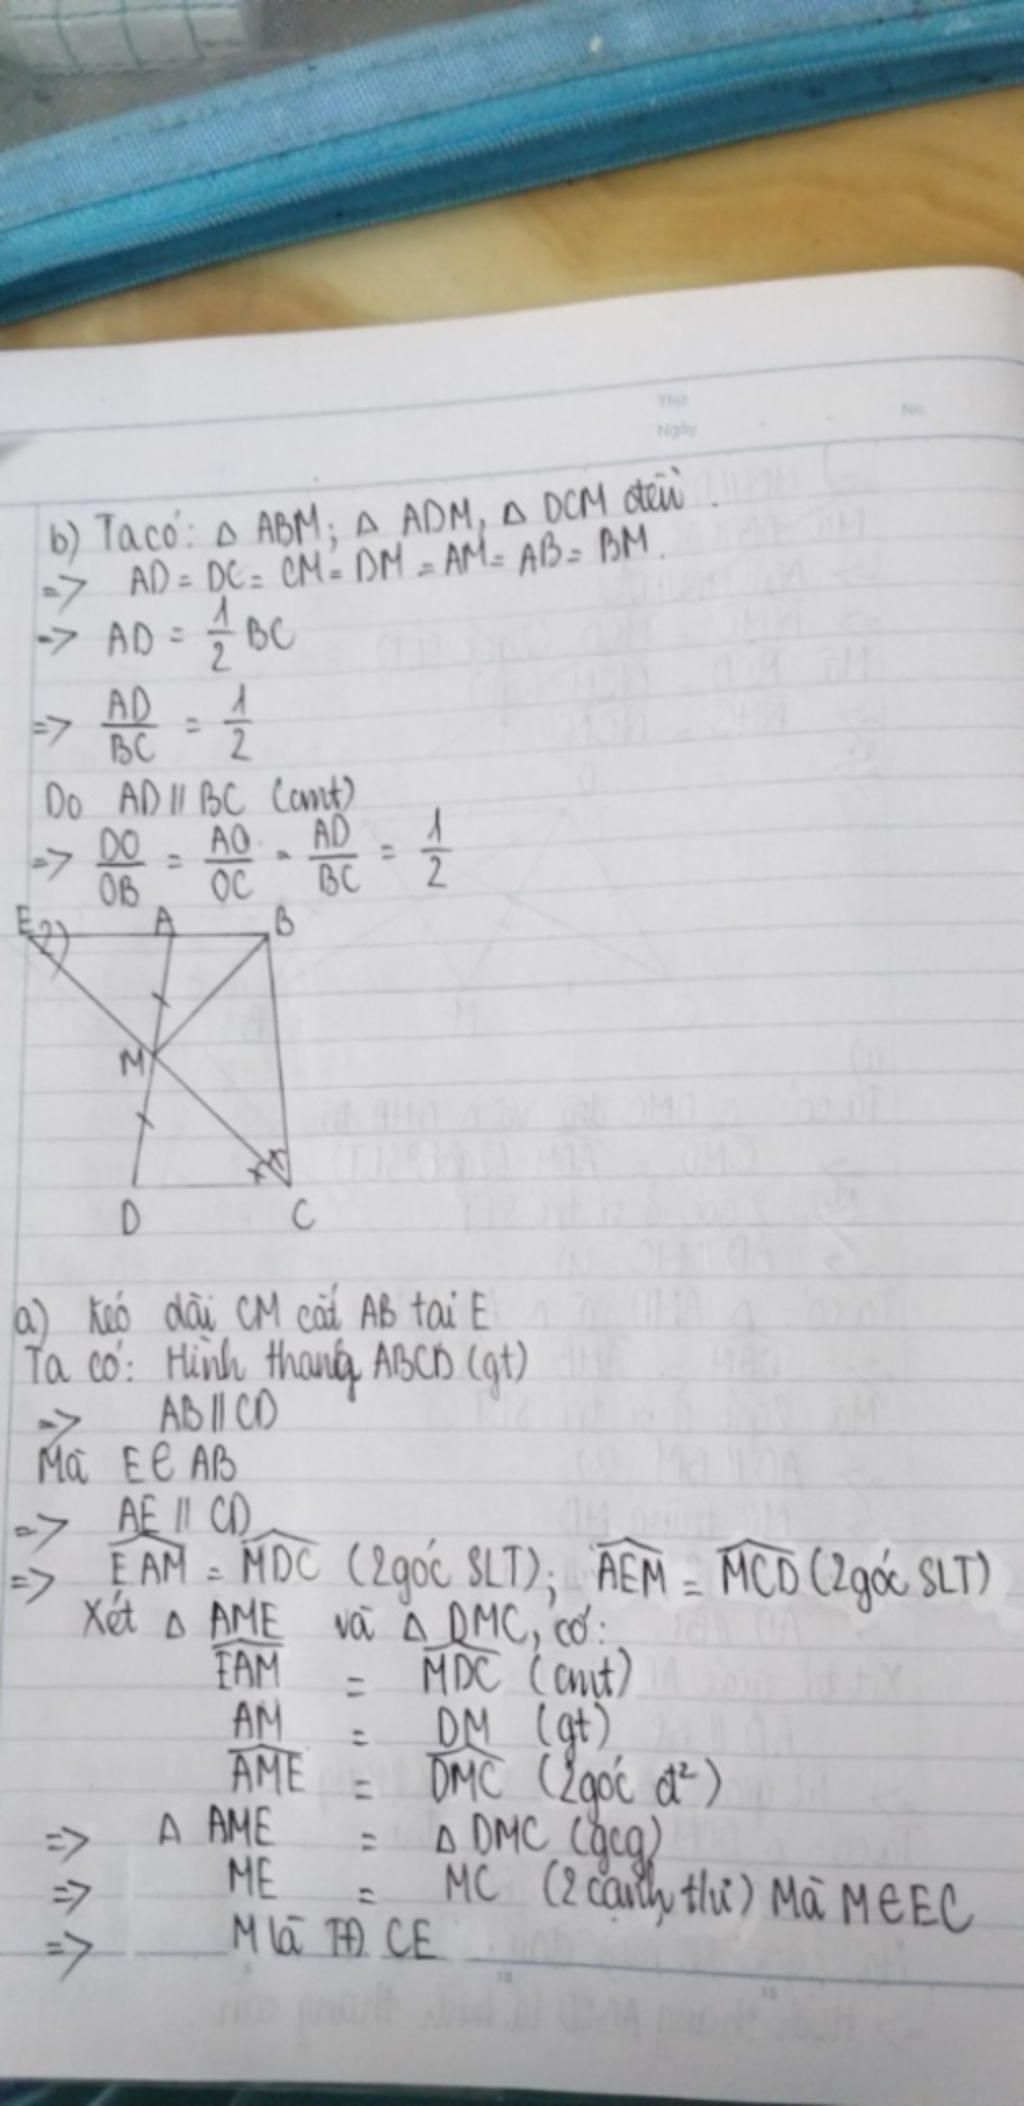 Thứ
Ngày
No.
b) Ta có: Δ ABM; Δ ADM, Δ DCM đều.
=> AD = DC = CM = DM = AM = AB = BM.
=> AD = 1/2 BC
=> AD/BC = 1/2
Do AD // BC (cmt)
=> DO/OB = AO/OC = AD/BC = 1/2
E A B
2)
M
D C
a) Kéo dài CM cắt AB tại E
Ta có: Hình thang ABCD (gt)
=> AB // CD
Mà E ∈ AB
=> AE // CD
=> \widehat{EAM} = \widehat{MDC} (2 góc SLT); \widehat{AEM} = \widehat{MCD} (2 góc SLT)
Xét Δ AME và Δ DMC, có:
\widehat{EAM} = \widehat{MDC} (cmt)
AM = DM (gt)
\widehat{AME} = \widehat{DMC} (2 góc đ²)
=> Δ AME = Δ DMC (gcg)
=> ME = MC (2 cạnh t/ư) Mà M ∈ EC
=> M là TĐ CE
5 10 15